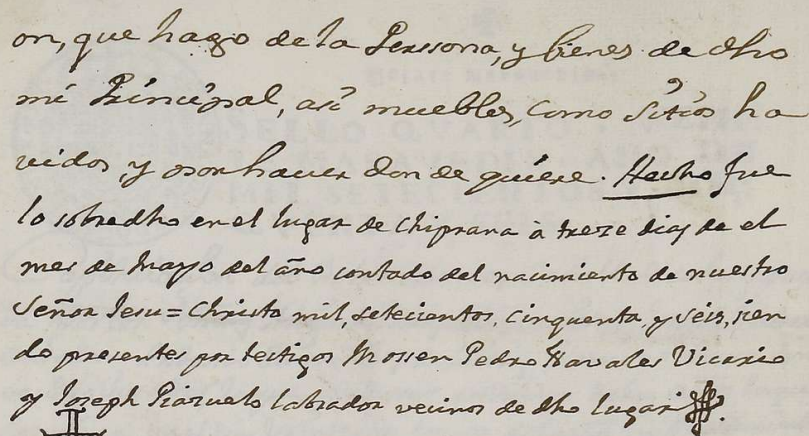 on, que hago de la Perssona, y bienes de dho
mi Principal, asi muebles, como Sitios ha
vidos, y por haver don de quiere. Hecho fue
lo sobredho en el lugar de Chiprana à treze dias de el
mes de Mayo del año contado del nacimiento de nuestro
Señor Jesu=Christo mil, setecientos, cinquenta, y seis, sien
do presentes por testigos Mossen Pedro Vicario
y Joseph Piazuelo labrador vecinos de dho lugar